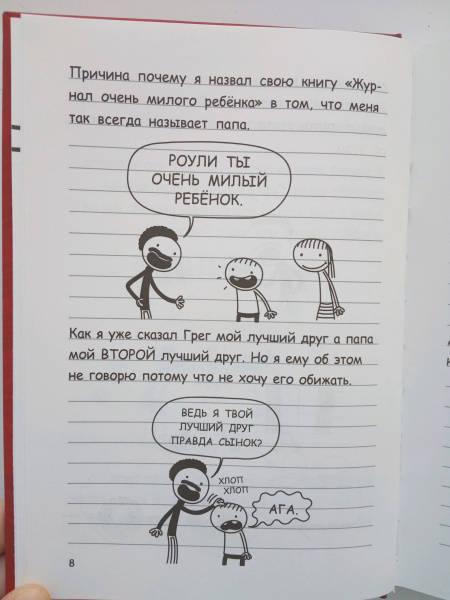 Причина почему я назвал свою книгу «Жур-
нал очень милого ребёнка» в том, что меня
так всегда называет папа.
РОУЛИ ТЫ
ОЧЕНЬ МИЛЫЙ
РЕБЁНОК.
Как я уже сказал Грег мой лучший друг а папа
мой ВТОРОЙ лучший друг. Но я ему об этом
не говорю потому что не хочу его обижать.
ВЕДЬ Я ТВОЙ
ЛУЧШИЙ ДРУГ
ПРАВДА СЫНОК?
ХЛОП
ХЛОП
АГА.
8